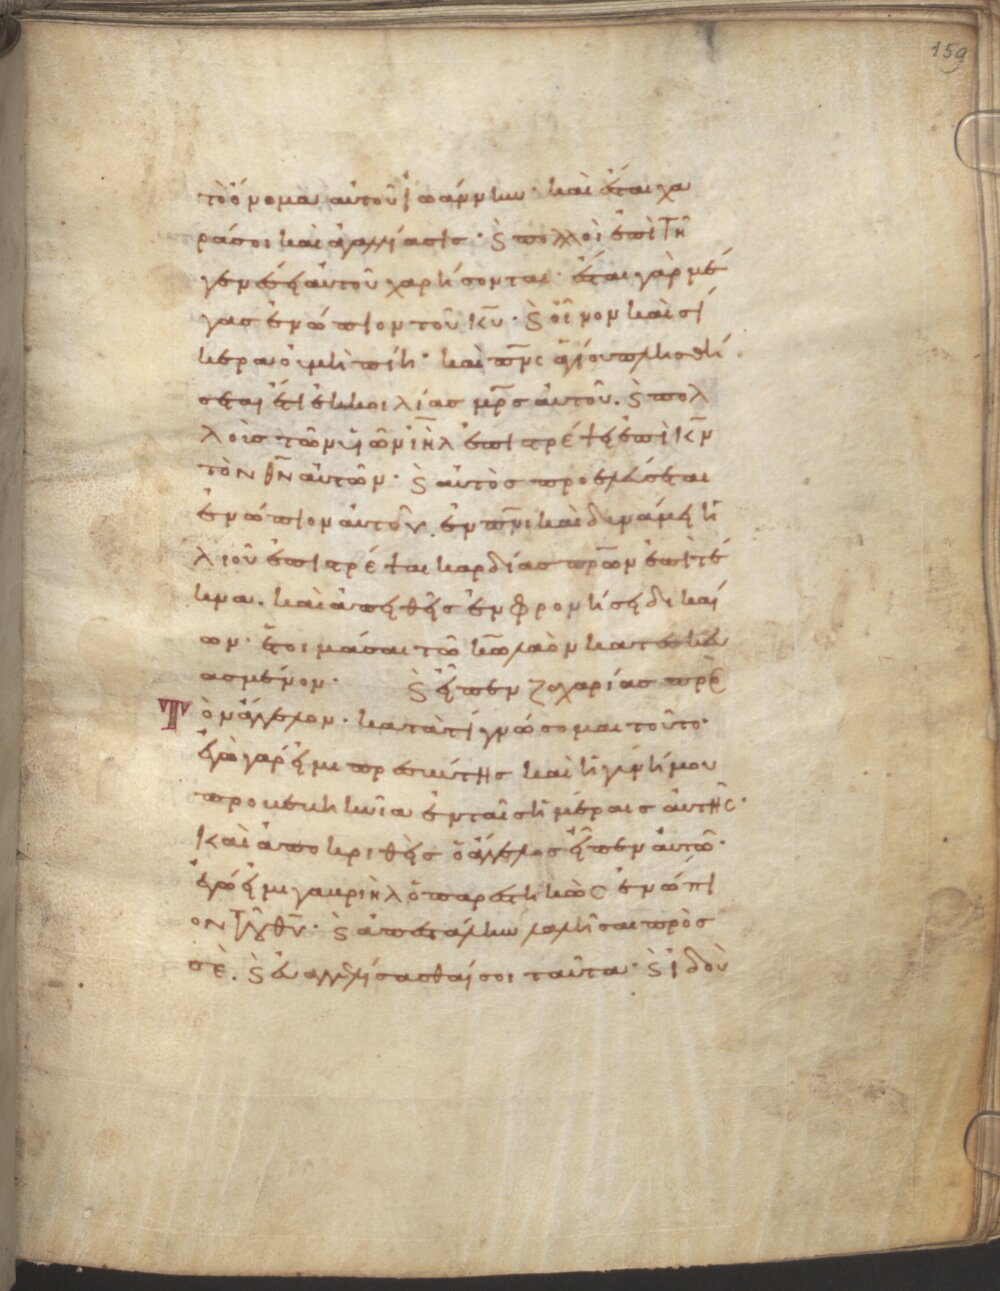 159
τὸ ὄνομα αὐτοῦ ἰωάννην· καὶ ἔσται χα
ρά σοι καὶ ἀγαλλίασις· ϗ πολλοὶ ἐπὶ τῆ
γενέσει αὐτοῦ χαρήσονται· ἔσται γὰρ μέ
γας ἐνώπιον τοῦ κ̅υ̅· ϗ οἶνον καὶ σί
κερα οὐ μὴ πίη· καὶ π̅ν̅ς ἁγίου πλησθή
σεται ἔτι ἐκ κοιλίας μ̅ρ̅ς αὐτοῦ. ϗ πολ
λοὺς τῶν υἱῶν ι̅η̅λ ἐπιστρέψει ἐπὶ κ̅ν̅
τὸν θ̅ν̅ αὐτῶν· ϗ αὐτὸς προελεύσεται
ἐνώπιον αὐτοῦ. ἐν π̅ν̅ι καὶ δυνάμει ἡ
λιοῦ ἐπιστρέψαι καρδίας π̅ρ̅ων ἐπὶ τέ
κνα. καὶ ἀπειθεῖς ἐν φρονήσει δικαί
ων· ἑτοιμάσαι τῶ κ̅ω̅ λαὸν κατεσκευ
ασμένον· ϗ εἶπεν ζαχαρίας πρὸς
τὸν ἄγγελον· κατὰ τί γνώσομαι τοῦτο·
ἐγὼ γάρ εἰμι πρεσβύτης καὶ ἡ γυνή μου
προβεβηκυῖα ἐν ταῖς ἡμέραις αὐτῆς·
Καὶ ἀποκριθεὶς ὁ ἄγγελος εἶπεν αὐτῶ·
ἐγώ εἰμι γαβριὴλ ὁ παρεστηκὼς ἐνώπι
ον τοῦ θ̅υ̅· ϗ ἀπεστάλην λαλῆσαι πρὸς
σέ. ϗ εὐαγγελίσασθαί σοι ταῦτα· ϗ ἰδοὺ